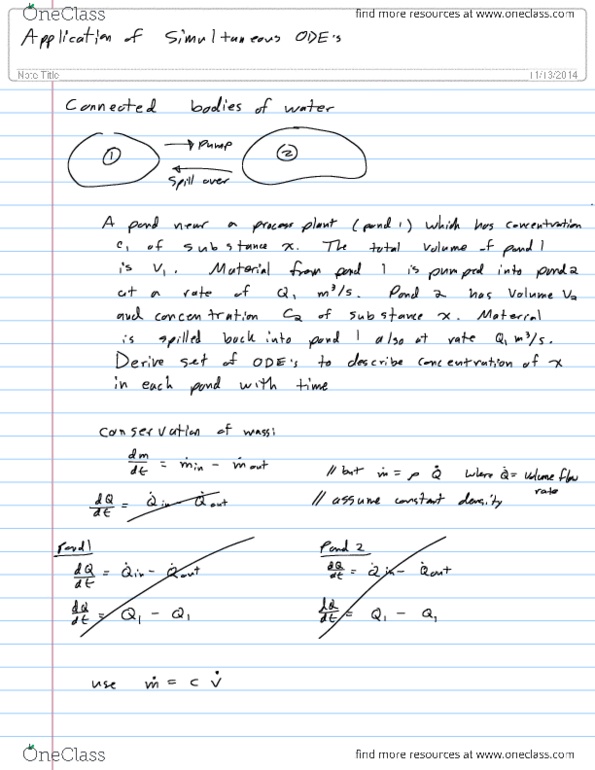 OneClass find more resources at www.oneclass.com
Application of Simultaneous ODE's
Note Title 11/13/2014
Connected bodies of water
1 → Pump 2
← Spill over
A pond near a process plant (pond 1) which has concentration
c₁ of substance x. The total volume of pond 1
is V₁. Material from pond 1 is pumped into pond 2
at a rate of Q₁ m³/s. Pond 2 has Volume V₂
and concentration C₂ of substance x. Material
is spilled back into pond 1 also at rate Q₁ m³/s.
Derive set of ODE's to describe concentration of x
in each pond with time
Conservation of mass:
dm/dt = ṁin - ṁout // but ṁ = ρ Q̇ where Q̇ = volume flow rate
dQ/dt = Q̇in - Q̇out // assume constant density
Pond 1 Pond 2
dQ/dt = Q̇in - Q̇out dQ/dt = Q̇in - Q̇out
dQ/dt = Q₁ - Q₁ dQ/dt = Q₁ - Q₁
use ṁ = c V̇
OneClass find more resources at www.oneclass.com